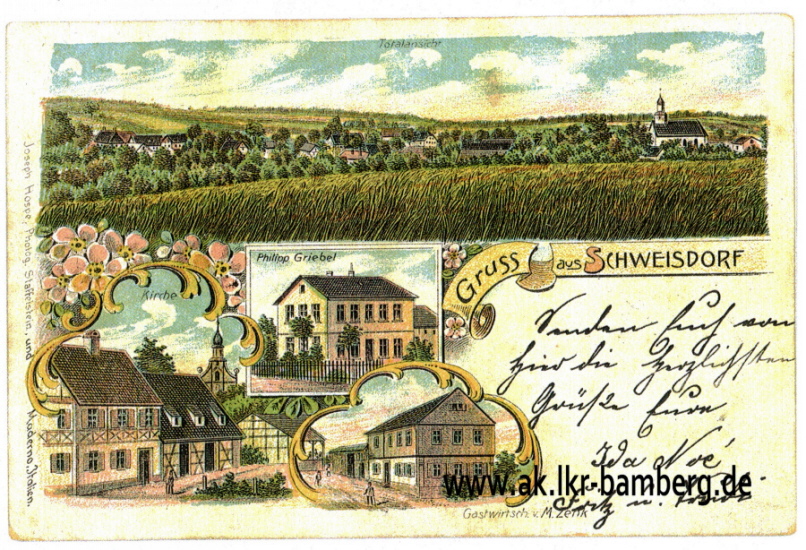 Totalansicht
Joseph Hospe, Photog. Staffelstein und Maderno, Italien.
Philipp Griebel
Kirche
Gruss aus SCHWEISDORF
Senden Euch von
hier die herzlichsten
Grüße Eure
Ida Noé
Fritz u.
www.ak.lkr-bamberg.de
Gastwirtsch. v. M. Zenk